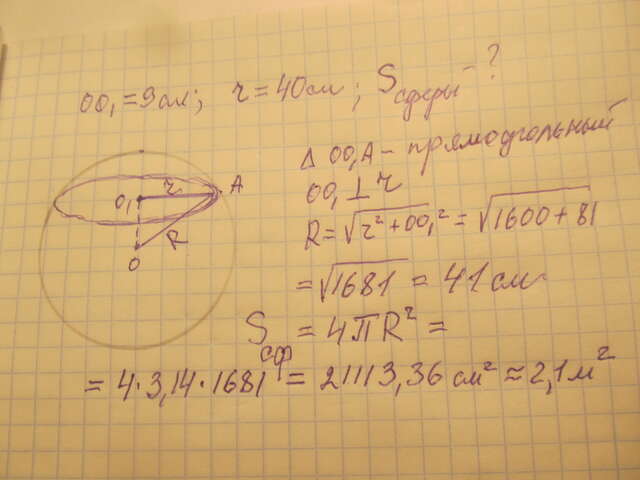 OO₁ = 9см; r = 40см; Sсферы ?
Δ OO₁A – прямоугольный
OO₁ ⊥ r
R = √r² + OO₁² = √1600 + 81
= √1681 = 41 см
Sсф = 4πR² =
= 4·3,14·1681 = 21113,36 см² ≈ 2,1 м²
O₁ r A
R
O